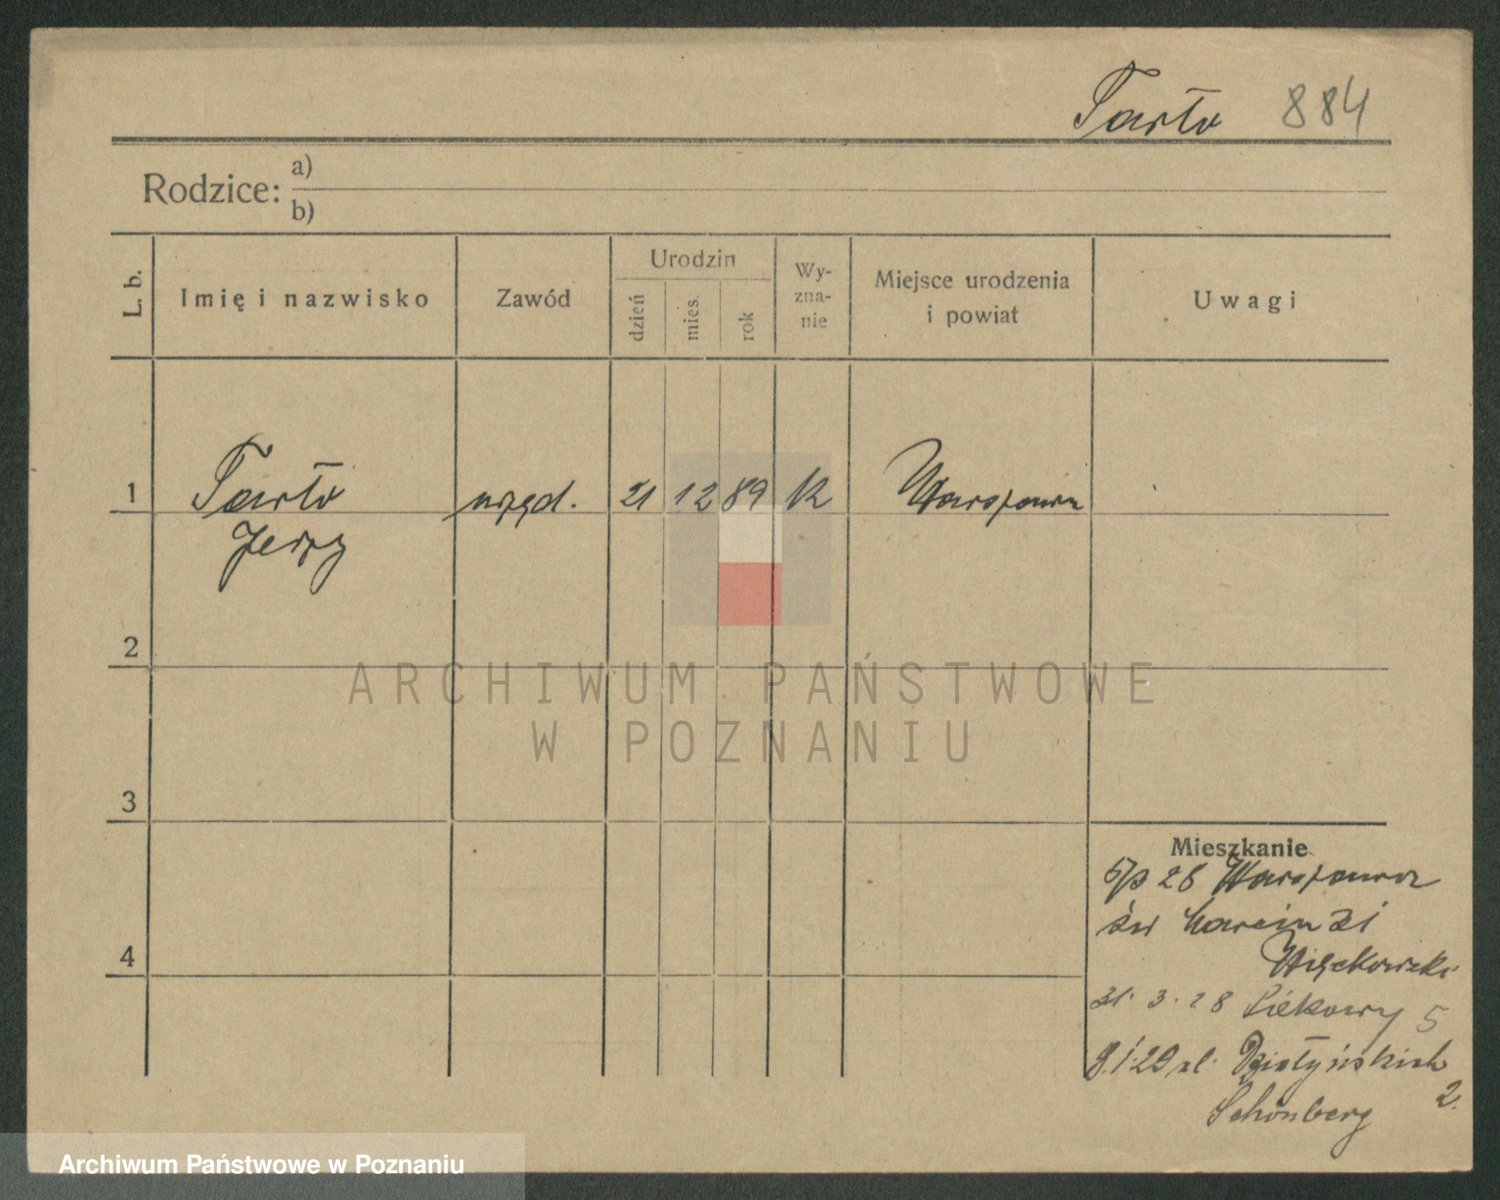 Tarło 884
Rodzice: a)
b)
L. b. Imię i nazwisko Zawód Urodzin dzień mies. rok Wy-zna-nie Miejsce urodzenia i powiat Uwagi
1 Tarło urzęd. 21 12 89 K Warszawa
Jerzy
2
ARCHIWUM PAŃSTWOWE
W POZNANIU
3
Mieszkanie
5/3 28 Warszawa
4
św Marcin 31
Więckowski
31. 3. 28 Piekowy 5
9.1.29 ul. Działyńskich
2.
Schönberg
Archiwum Państwowe w Poznaniu